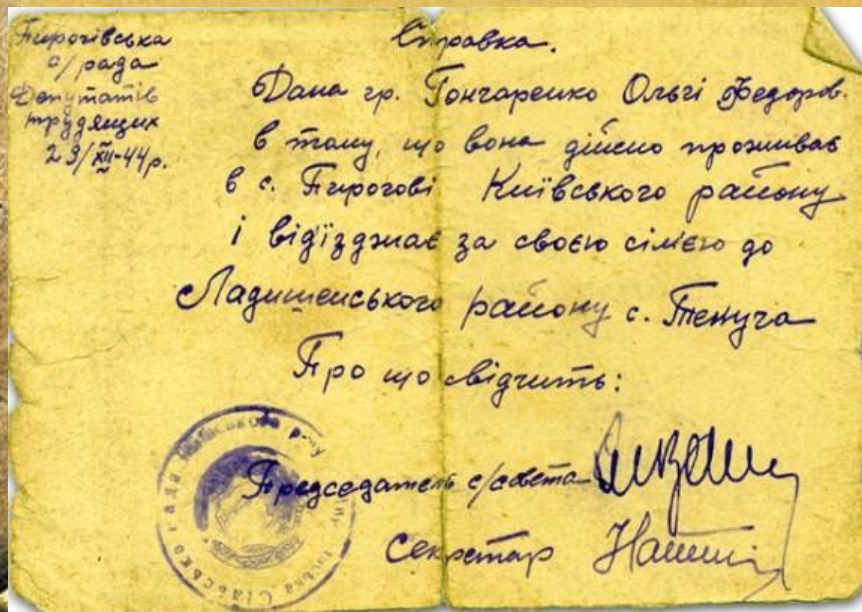 Пирогівська
с/рада
Депутатів
трудящих
29/XII-44р.
Справка.
Дана гр. Гончаренко Ользі Федоров.
в тому, що вона дійсно проживає
в с. Пирогові Київського району
і відїзджає за своєю сімєю до
Ладишенського району с. Текуча
Про що свідчить:
Председатель с/совета
Секретар
Сільська Рада Київського р-ну